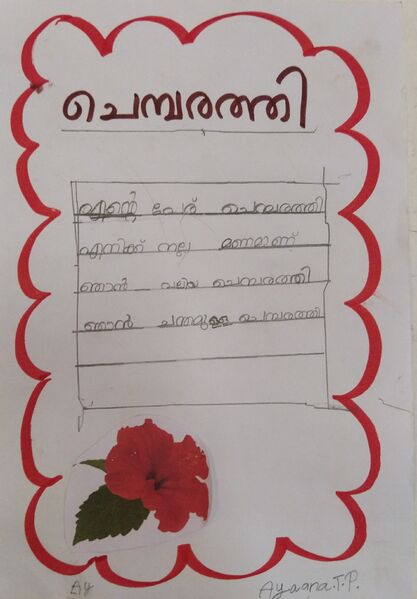 ചെമ്പരത്തി
എന്റെ പേര് ചെമ്പരത്തി
എനിക്ക് നല്ല മണമാണ്
ഞാൻ വലിയ ചെമ്പരത്തി
ഞാൻ ചന്തമുള്ള ചെമ്പരത്തി
Ay
Ayaana.T.P.